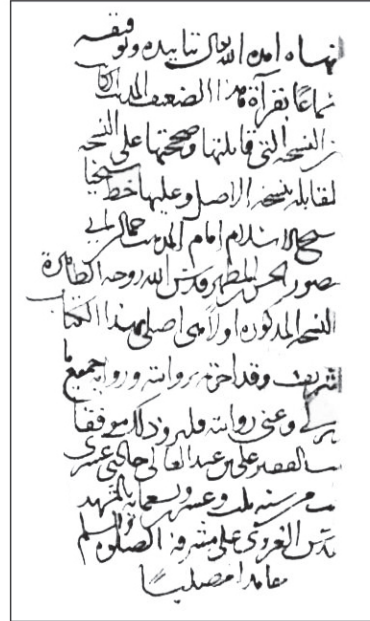 انهاه ايده الله تعالى بتاييده وتوفيقه
سماعا بقرآة هذا الضعيف لهذا الكتاب
من النسخه التي قابلتها وصححتها على النسخه
المقابله بنسخه الاصل وعليها خط شيخنا
شيخ الاسلام امام المذهب جمال
منصور الحسن بن المطهر قدس الله روحه الطاهرة
النسخه المذكوره اولا هي اصلي بهذا الكتاب
الشريف وقد اجزت له روايته ورواية جميع ما
وعني روايته فليرو ذلك موفقا
الفقير علي بن عبد العالي
سنه ثلث وعشر وتسعمايه بالمشهد
المقدس الغروي على مشرفه الصلوة والسلم
حامدا مصليا